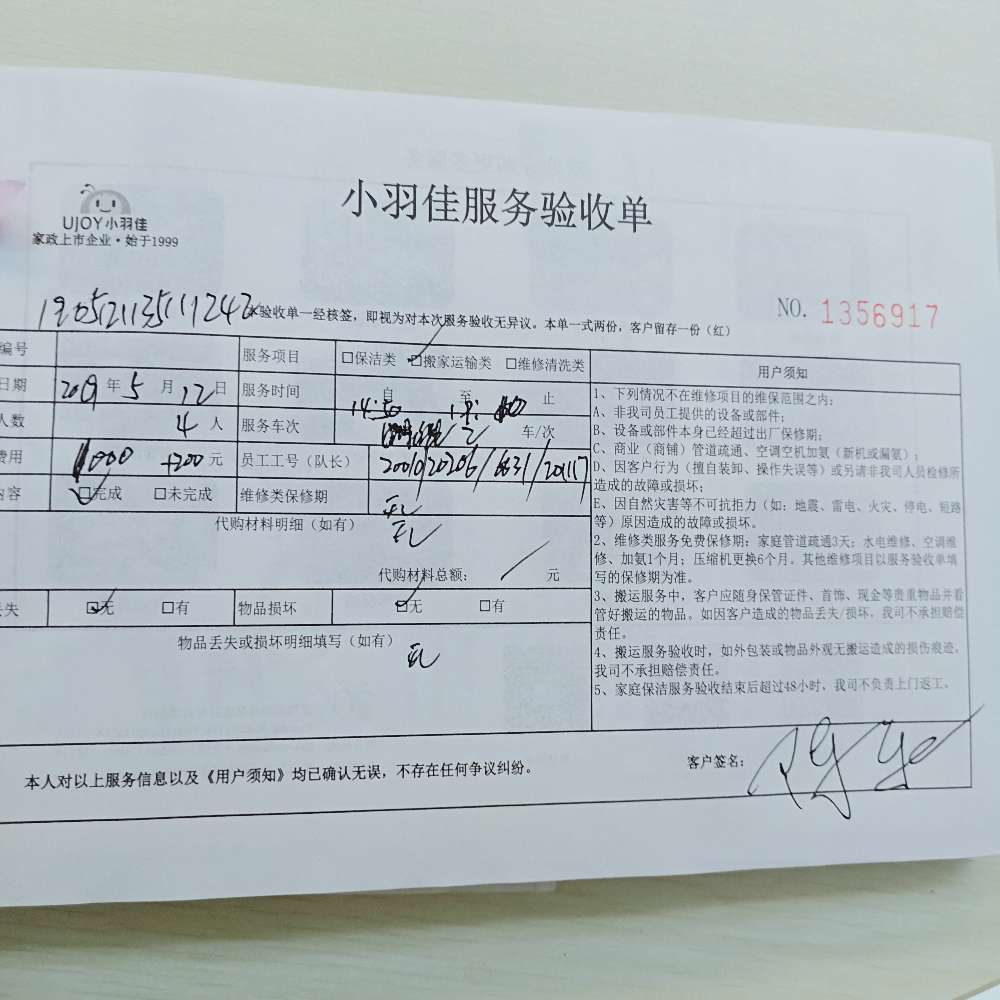 UJOY小羽佳
家政上市企业·始于1999
小羽佳服务验收单
NO. 1356917
验收单一经核签，即视为对本次服务验收无异议。本单一式两份，客户留存一份（红）
编号
服务项目 □保洁类 □搬家运输类 □维修清洗类
日期 2019年5月12日
服务时间 自 14:50 至 止
人数 4人
服务车次 2 车/次
费用 1000 +200元
员工工号（队长）
内容 □完成 □未完成
维修类保修期 无
代购材料明细（如有） 无
代购材料总额： / 元
丢失 □无 □有
物品损坏 □无 □有
物品丢失或损坏明细填写（如有） 无
用户须知
1、下列情况不在维修项目的维保范围之内：
A、非我司员工提供的设备或部件；
B、设备或部件本身已经超过出厂保修期；
C、商业（商铺）管道疏通、空调空机加氨（新机或漏氨）；
D、因客户行为（擅自装卸、操作失误等）或另请非我司人员检修所
造成的故障或损坏；
E、因自然灾害等不可抗拒力（如：地震、雷电、火灾、停电、短路
等）原因造成的故障或损坏。
2、维修类服务免费保修期：家庭管道疏通3天；水电维修、空调维
修、加氨1个月；压缩机更换6个月。其他维修项目以服务验收单填
写的保修期为准。
3、搬运服务中，客户应随身保管证件、首饰、现金等贵重物品并看
管好搬运的物品。如因客户造成的物品丢失/损坏，我司不承担赔偿
责任。
4、搬运服务验收时，如外包装或物品外观无搬运造成的损伤痕迹，
我司不承担赔偿责任。
5、家庭保洁服务验收结束后超过48小时，我司不负责上门返工。
本人对以上服务信息以及《用户须知》均已确认无误，不存在任何争议纠纷。
客户签名：